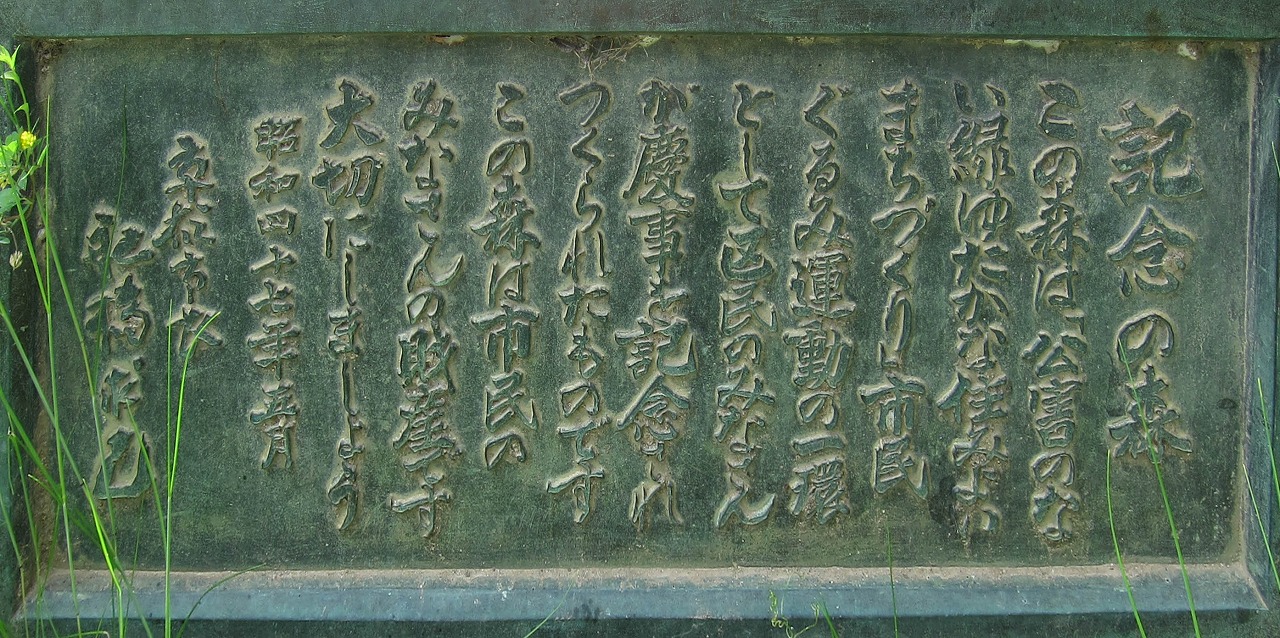 記念の森
この森は公害のな
い緑ゆたかな住みよい
まちづくりに市民
ぐるみ運動の一環
として区民のみなさん
が慶事を記念され
つくられたものです
この森は市民の
みなさんの財産です
大切にしましょう
昭和四十七年五月
京都市長
舩橋求己